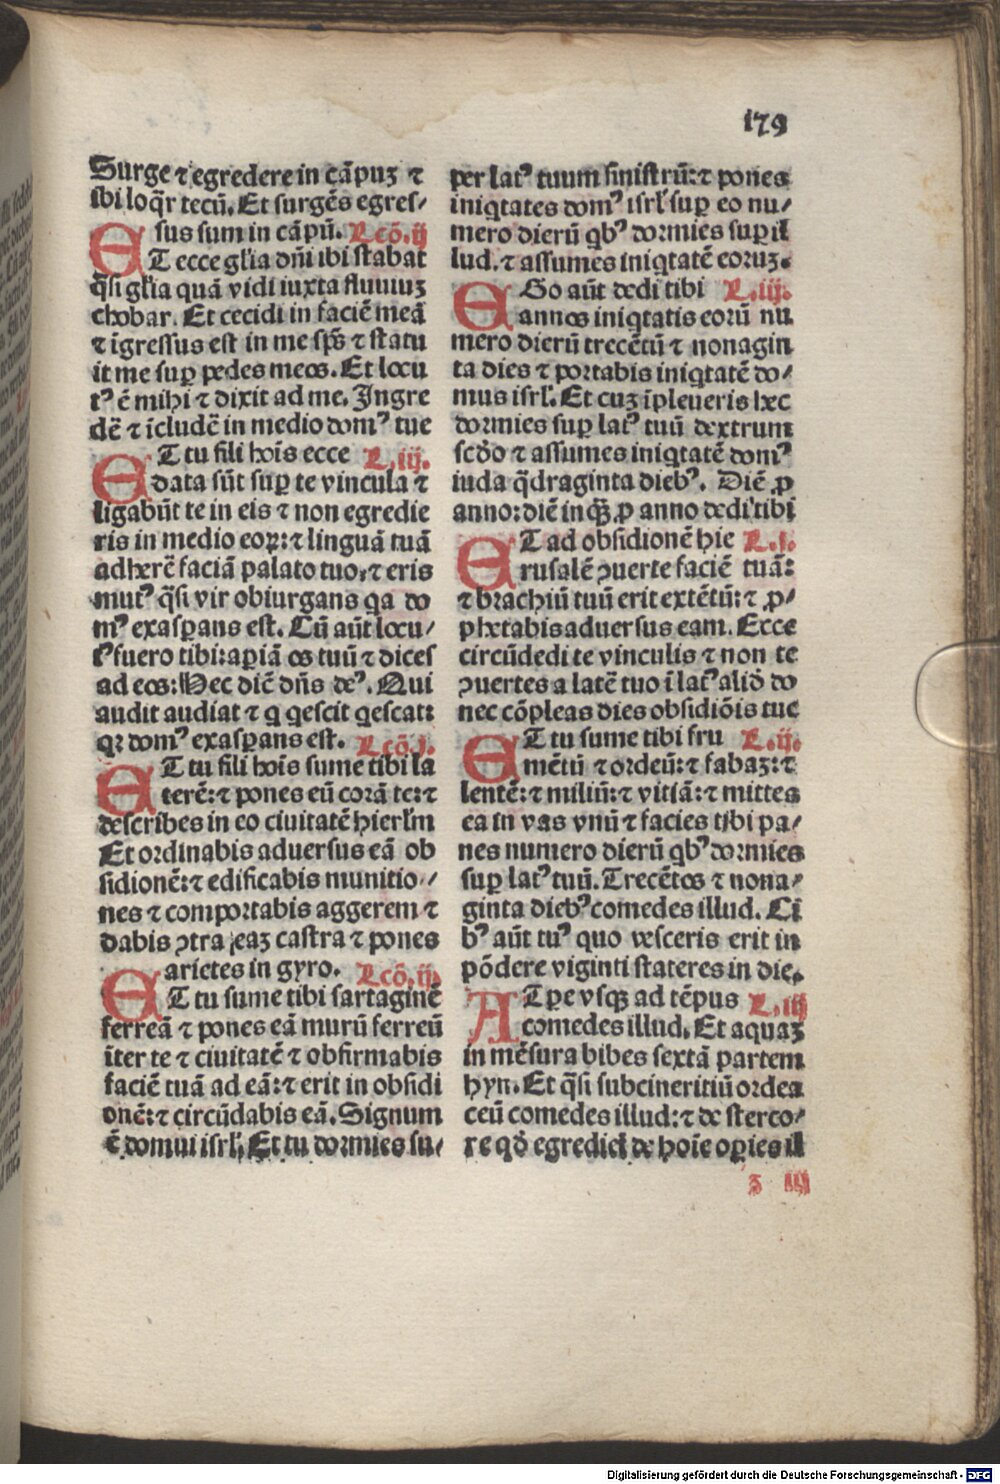 179
Surge ⁊ egredere in cāpuꝫ ⁊
ibi loq̄r tecū. Et surgēs egres⸗
sus sum in cāpū. Lcō. ij
ET ecce gl'ia dn̄i ibi stabat
q̄si gl'ia quā vidi iuxta fluuiuꝫ
chobar. Et cecidi in faciē meā
⁊ īgressus est in me sp̄s ⁊ statu
it me suꝑ pedes meos. Et locu
tꝰ ē mihi ⁊ dixit ad me. Ingre
dē ⁊ īcludē in medio domꝰ tue
ET tu fili hoīs ecce L. iij.
data sūt suꝑ te vincula ⁊
ligabūt te in eis ⁊ non egredie
ris in medio eoꝝ: ⁊ linguā tuā
adherē faciā palato tuo, ⁊ eris
mutꝰ q̄si vir obiurgans qa do
mꝰ exasꝑans est. Cū aūt locu⸗
tꝰ fuero tibi: aꝑiā os tuū ⁊ dices
ad eos: Hec dic̄ dn̄s deꝰ. Qui
audit audiat ⁊ q qescit qescat:
qꝛ domꝰ exasꝑans est. Lcō. j.
ET tu fili hoīs sume tibi la
terē: ⁊ pones eū corā te: ⁊
describes in eo ciuitatē hierl'm
Et ordinabis aduersus eā ob
sidionē: ⁊ edificabis munitio⸗
nes ⁊ comportabis aggerem ⁊
dabis ꝯtra eaꝫ castra ⁊ pones
arietes in gyro. Lcō. ij.
ET tu sume tibi sartaginē
ferreā ⁊ pones eā murū ferreū
īter te ⁊ ciuitatē ⁊ obfirmabis
faciē tuā ad eā: ⁊ erit in obsidi
onē: ⁊ circūdabis eā. Signum
ē domui isrl'. Et tu dormies su⸗
per latꝰ tuum sinistrū: ⁊ pones
iniqtates domꝰ isrl' suꝑ eo nu⸗
mero dierū qbꝰ dormies suꝑ il
lud. ⁊ assumes iniqtatē eoruꝫ.
EGo aūt dedi tibi L. iij.
annos iniqtatis eorū nu
mero dierū trecētū ⁊ nonagin
ta dies ⁊ portabis iniqtatē do⸗
mus isrl'. Et cuꝫ īpleueris hec
dormies suꝑ latꝰ tuū dextrum
scd̄o ⁊ assumes iniqtatē domꝰ
iuda q̄draginta diebꝰ. Diē ꝓ
anno: diē inqꝫ ꝓ anno dedi tibi
ET ad obsidionē hie L. j.
rusalē ꝯuerte faciē tuā:
⁊ brachiū tuū erit extētū: ⁊ ꝓ⸗
phetabis aduersus eam. Ecce
circūdedi te vinculis ⁊ non te
ꝯuertes a latē tuo ī latꝰ aliđ do
nec cōpleas dies obsidiōis tue
ET tu sume tibi fru L. ij.
mētū ⁊ ordeū: ⁊ fabaꝫ: ⁊
lentē: ⁊ miliū: ⁊ vitiā: ⁊ mittes
ea in vas vnū ⁊ facies tibi pa⸗
nes numero dierū qbꝰ dormies
suꝑ latꝰ tuū. Trecētos ⁊ nona⸗
ginta diebꝰ comedes illud. Ci
bꝰ aūt tuꝰ quo vesceris erit in
pōdere viginti stateres in die.
AT̄pe vsqꝫ ad tēpus L. iij
comedes illud. Et aquaꝫ
in mēsura bibes sextā partem
hyn. Et q̄si subcineritiū ordea
ceū comedes illud: ⁊ de sterco⸗
re qđ egredict̄ de hoīe oꝑies il
ʒ iiij
Digitalisierung gefördert durch die Deutsche Forschungsgemeinschaft - DFG